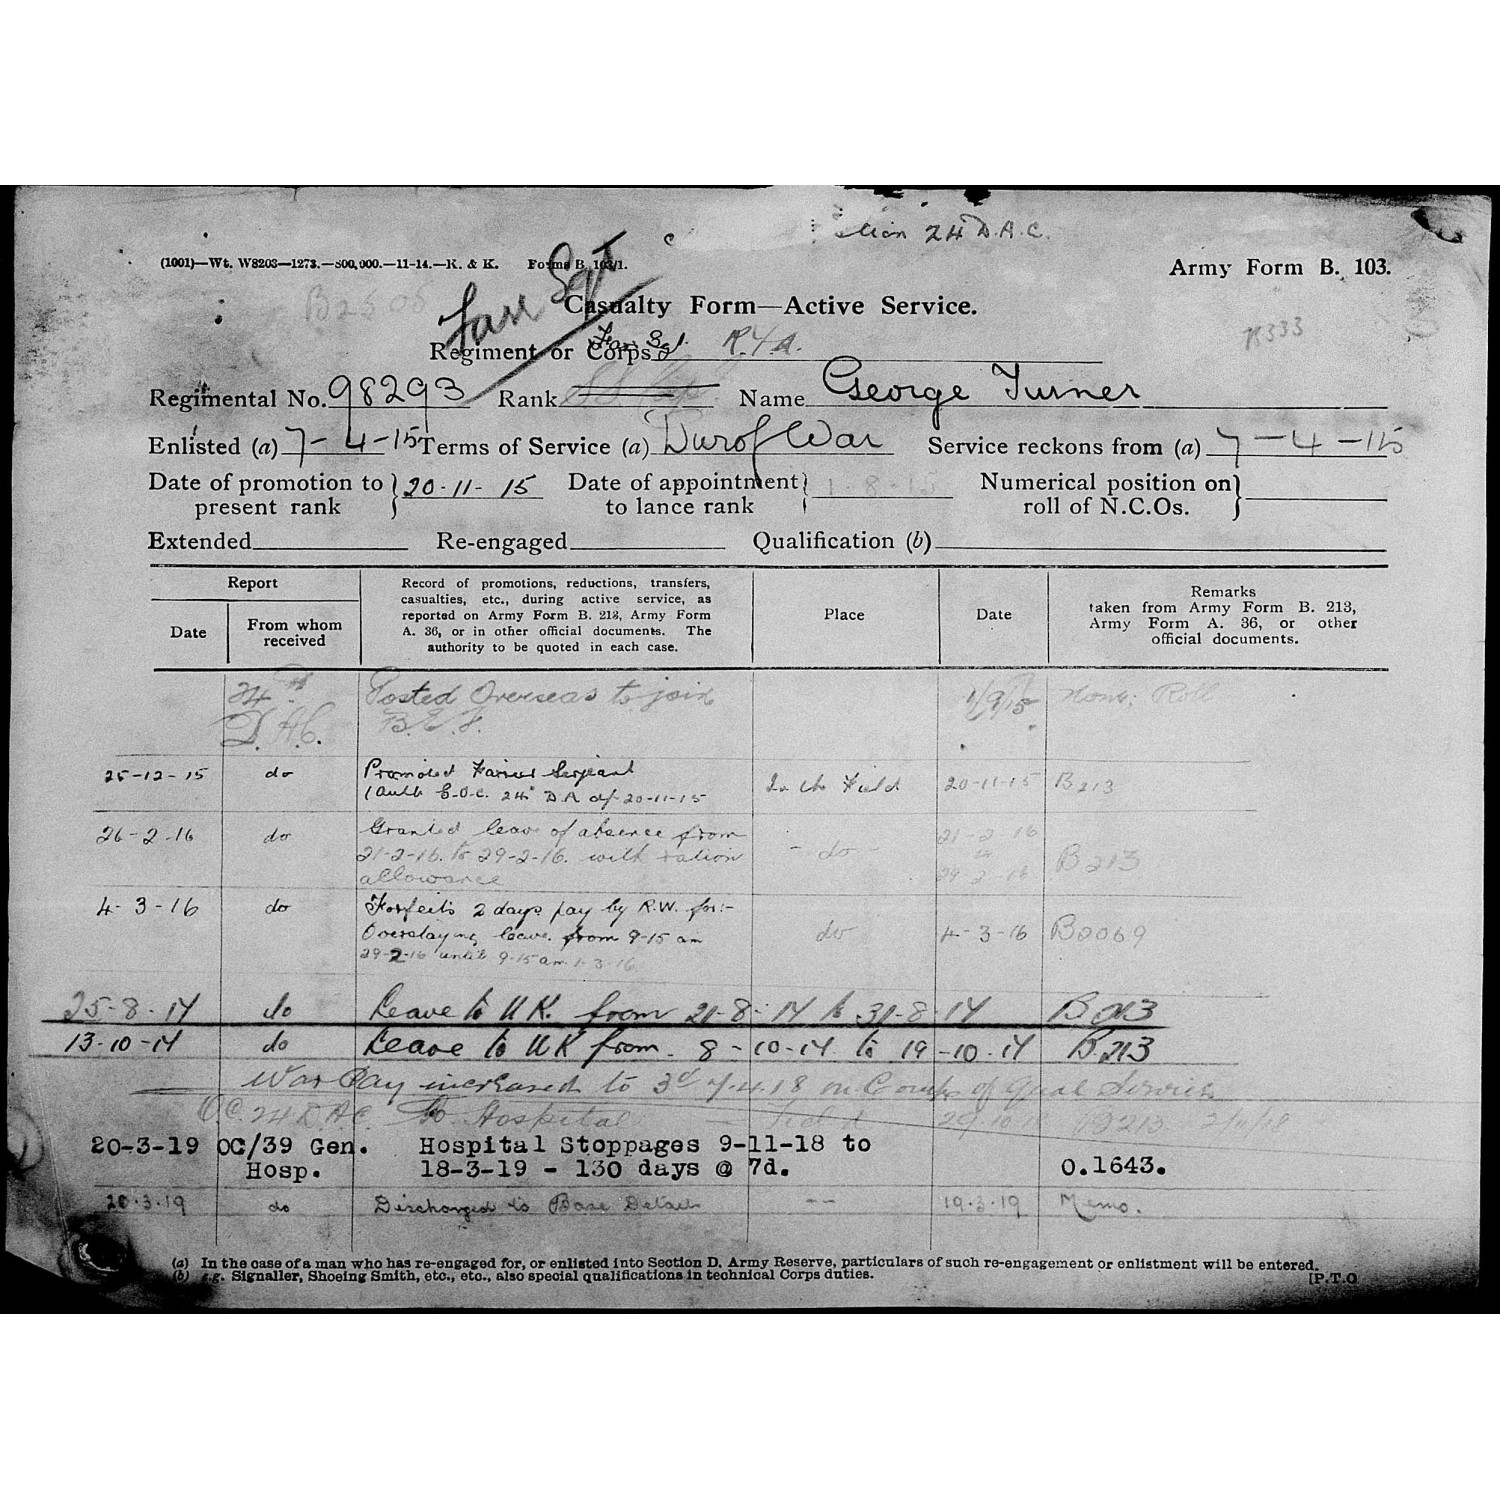 24 D.A.C.
(1001)—Wt. W8203—1273.—800,000.—11-14.—K. & K. Forms B. 103/1.
Army Form B. 103.
Farr Sgt
B2505
Casualty Form—Active Service.
75333
Regiment or Corps Far. Sgt. R.F.A.
Regimental No. 98293 Rank Name George Turner
Enlisted (a) 7-4-15 Terms of Service (a) Dur of War Service reckons from (a) 7-4-15
Date of promotion to present rank 20-11-15 Date of appointment to lance rank 1-8-15 Numerical position on roll of N.C.Os.
Extended Re-engaged Qualification (b)
Report
Date
From whom received
Record of promotions, reductions, transfers,
casualties, etc., during active service, as
reported on Army Form B. 213, Army Form
A. 36, or in other official documents. The
authority to be quoted in each case.
Place
Date
Remarks
taken from Army Form B. 213,
Army Form A. 36, or other
official documents.
24th Posted Overseas to join 1/9/15 Nom: Roll
D.A.C. B.E.F.
25-12-15 do Promoted Farrier Serjeant In the Field 20-11-15 B213
(Auth G.O.C. 24th D.A. of 20-11-15
26-2-16 do Granted leave of absence from -do- 21-2-16
21-2-16. to 29-2-16. with ration to B213
allowance 29-2-16
4-3-16 do Forfeits 2 days pay by R.W. for:- do 4-3-16 B2069
Overstaying leave. from 9-15 am
29-2-16 until 9-15 am 1-3-16
25-8-17 do Leave to U.K. from 21-8-17 to 31-8-17 B213
13-10-17 do Leave to UK from 8-10-17 to 19-10-17 B.213
War Pay increased to 3d 7.4.18 on Compn of 3 years Service
O.C. 24 D.A.C. To Hospital Field B213
20-3-19 OC/39 Gen. Hospital Stoppages 9-11-18 to
Hosp. 18-3-19 - 130 days @ 7d. O.1643.
20.3.19 do Discharged to Base Details -- 19.3.19 Memo.
(a) In the case of a man who has re-engaged for, or enlisted into Section D. Army Reserve, particulars of such re-engagement or enlistment will be entered.
(b) e.g. Signaller, Shoeing Smith, etc., etc., also special qualifications in technical Corps duties. [P.T.O